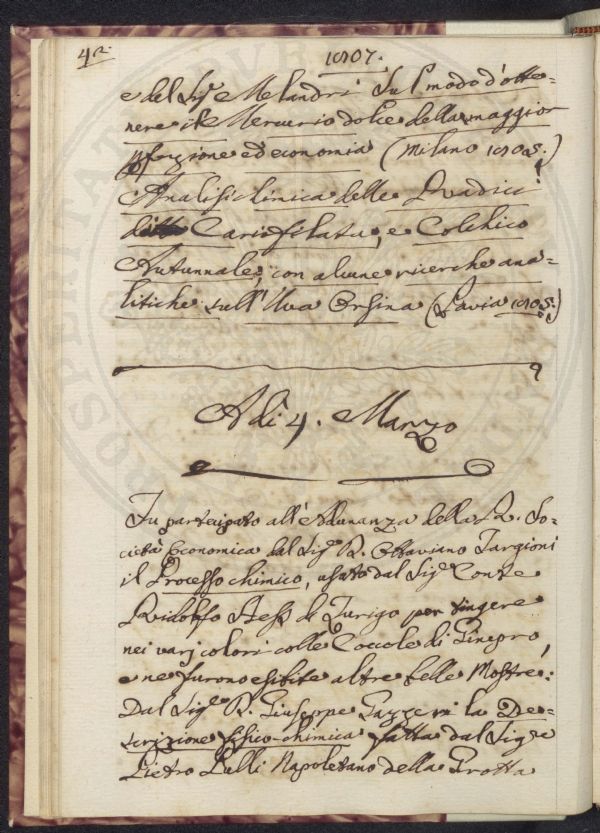 42.
1807.
e del Sig.e Melandri Sul modo d'otte=
nere il Mercurio dolce della maggior
perfezione ed economia (Milano 1805.)
Analisi clinica delle Radici
Cariofilata, e Colchico
Autunnale, con alcune ricerche ana=
litiche sull'Uva Orsina (Pavia 1805.)
Adì 4. Marzo
Fu partecipato all'Adunanza della R. So=
cietà Economica dal Sig.e R. Ottaviano Targioni
il Processo chimico, usato dal Sig.e Conte
Ridolfo di Zurigo per tingere
nei varj colori colle Coccole di Ginepro,
e ne furono esibite altre belle Mostre:
Dal Sig.e R. Giuseppe Gazzeri la De=
scrizione fisico-chimica fatta dal Sig.e
Pietro Pulli Napoletano della Grotta